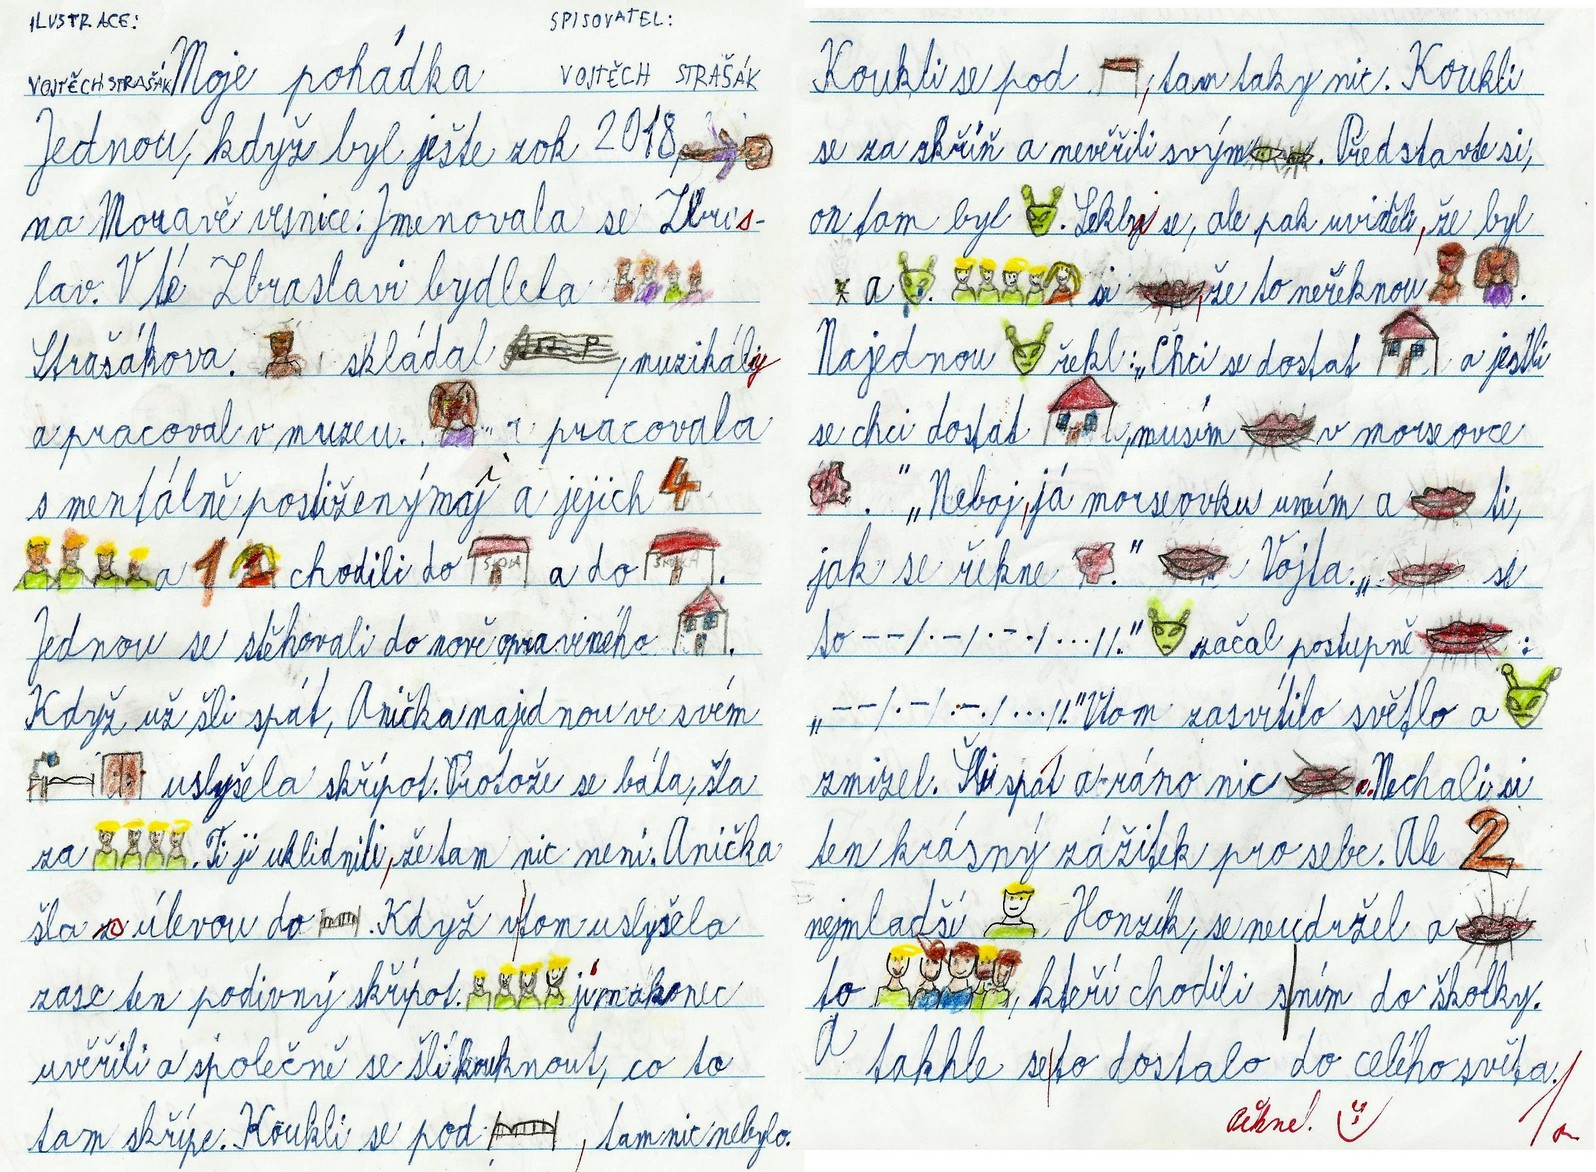 ILUSTRACE:
SPISOVATEL:
VOJTĚCH STRAŠÁK Moje pohádka VOJTĚCH STRAŠÁK
Jednou, když byl ješte rok 2018,
na Moravě vesnice. Jmenovala se Zbras-
lav. V té Zbraslavi bydlela
Strašákova. skládal , muzikály
a pracoval v muzeu. pracovala
s mentálně postiženými a jejich 4
a 1 chodili do ŠKOLA a do ŠKOLKA.
Jednou se stěhovali do nově opraveného .
Když už šli spát, Anička najednou ve svém
uslyšela skřípot. Protože se bála, šla
za . Ti ji uklidnili, že tam nic není. Anička
šla s úlevou do . Když vtom uslyšela
zase ten podivný skřípot. jí nakonec
uvěřili a společně se šli kouknout, co to
tam skřípe. Koukli se pod , tam nic nebylo.
Koukli se pod , tam taky nic. Koukli
se za skříň a nevěřili svým . Představte si,
on tam byl . Lekli se, ale pak uviděli, že byl
a . si , že to neřeknou .
Najednou řekl: „Chci se dostat a jestli
se chci dostat , musím v morseovce
. " „Neboj, já morseovku umím a ti,
jak se řekne ." Vojta. „ se
to --/.-/.-./...//." začal postupně :
„--/.-/.-./...//." Vtom zasvítilo světlo a
zmizel. Šli spát a ráno nic . Nechali si
ten krásný zážitek pro sebe. Ale 2
nejmladší Honzík, se neudržel a
to , kteří chodili s ním do školky.
A takhle se to dostalo do celého světa.
Pěkné!